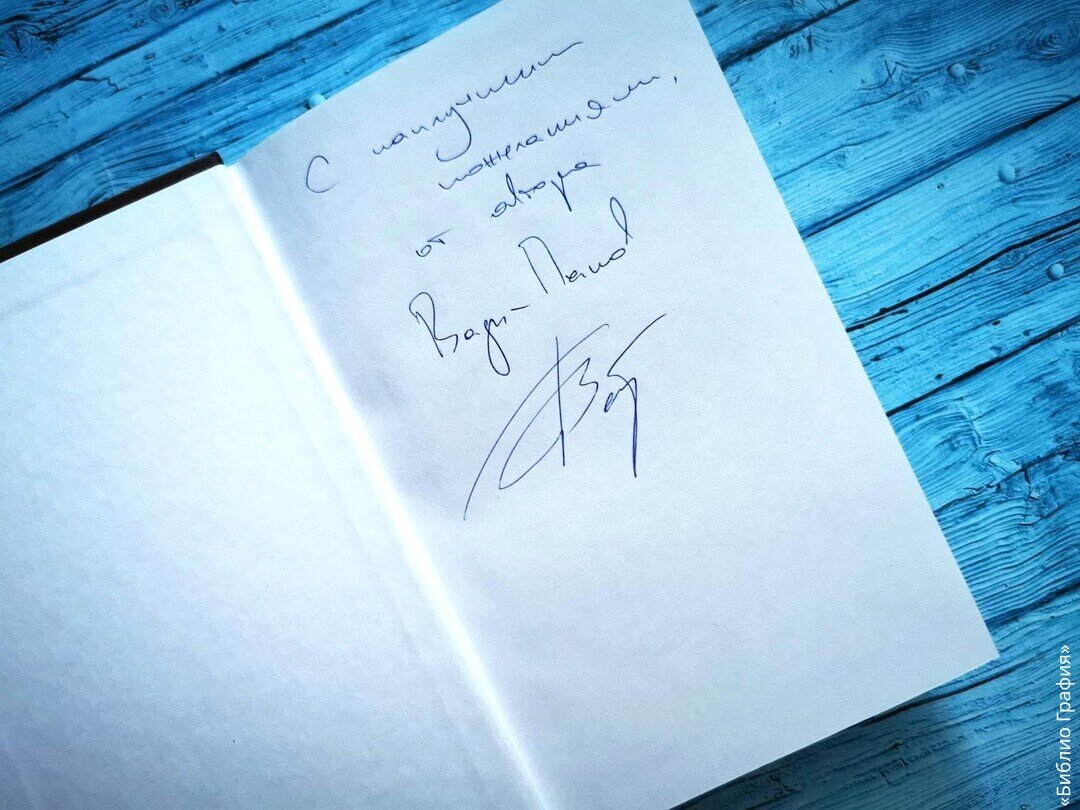 С наилучшими
пожеланиями,
от автора
Вадим Панов
«Библио Графия»